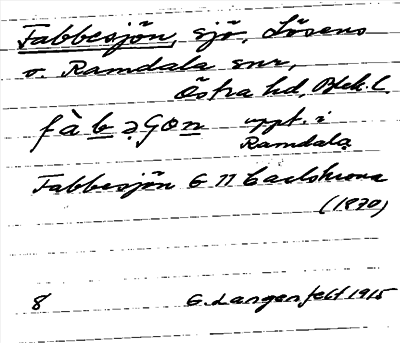 Fabbesjön, sjö, Lösens
o. Ramdala snr,
Östra hd, Blek. l.
fàbəʃɔn uppt. i
Ramdala
Fabbesjön G 77 Carlskrona
(1870)
8 G. Langenfelt 1915